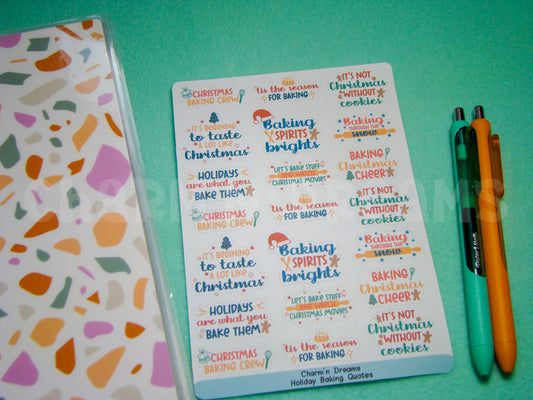 CHRISTMAS
BAKING CREW
'tis the season
FOR BAKING
IT'S NOT
Christmas
WITHOUT
cookies
IT'S BEGINING
to taste
A LOT LIKE
Christmas
Baking
SPIRITS
brights
Baking
THROUGH THE
snow
HOLIDAYS
are what you
BAKE THEM
LET'S BAKE STUFF
AND WATCH
CHRISTMAS MOVIES
BAKING
Christmas
CHEER
CHRISTMAS
BAKING CREW
'tis the season
FOR BAKING
IT'S NOT
Christmas
WITHOUT
cookies
IT'S BEGINING
to taste
A LOT LIKE
Christmas
Baking
SPIRITS
brights
Baking
THROUGH THE
snow
HOLIDAYS
are what you
BAKE THEM
LET'S BAKE STUFF
AND WATCH
CHRISTMAS MOVIES
BAKING
Christmas
CHEER
CHRISTMAS
BAKING CREW
'tis the season
FOR BAKING
IT'S NOT
Christmas
WITHOUT
cookies
Charm'n Dreams
Holiday Baking Quotes